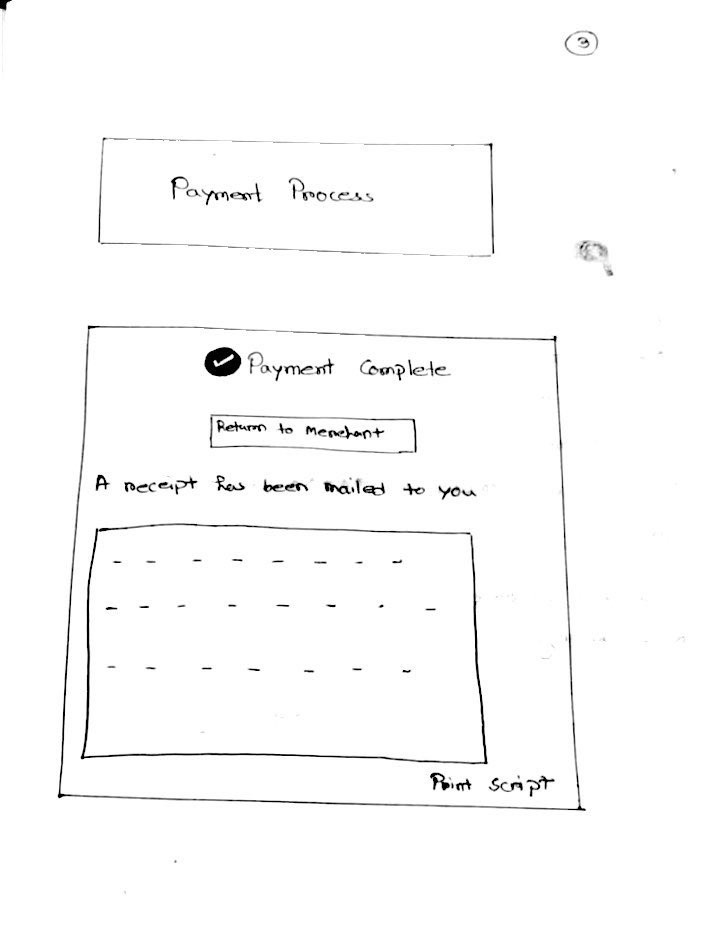 3
Payment Process
Payment Complete
Return to Merchant
A receipt has been mailed to you
Print Script